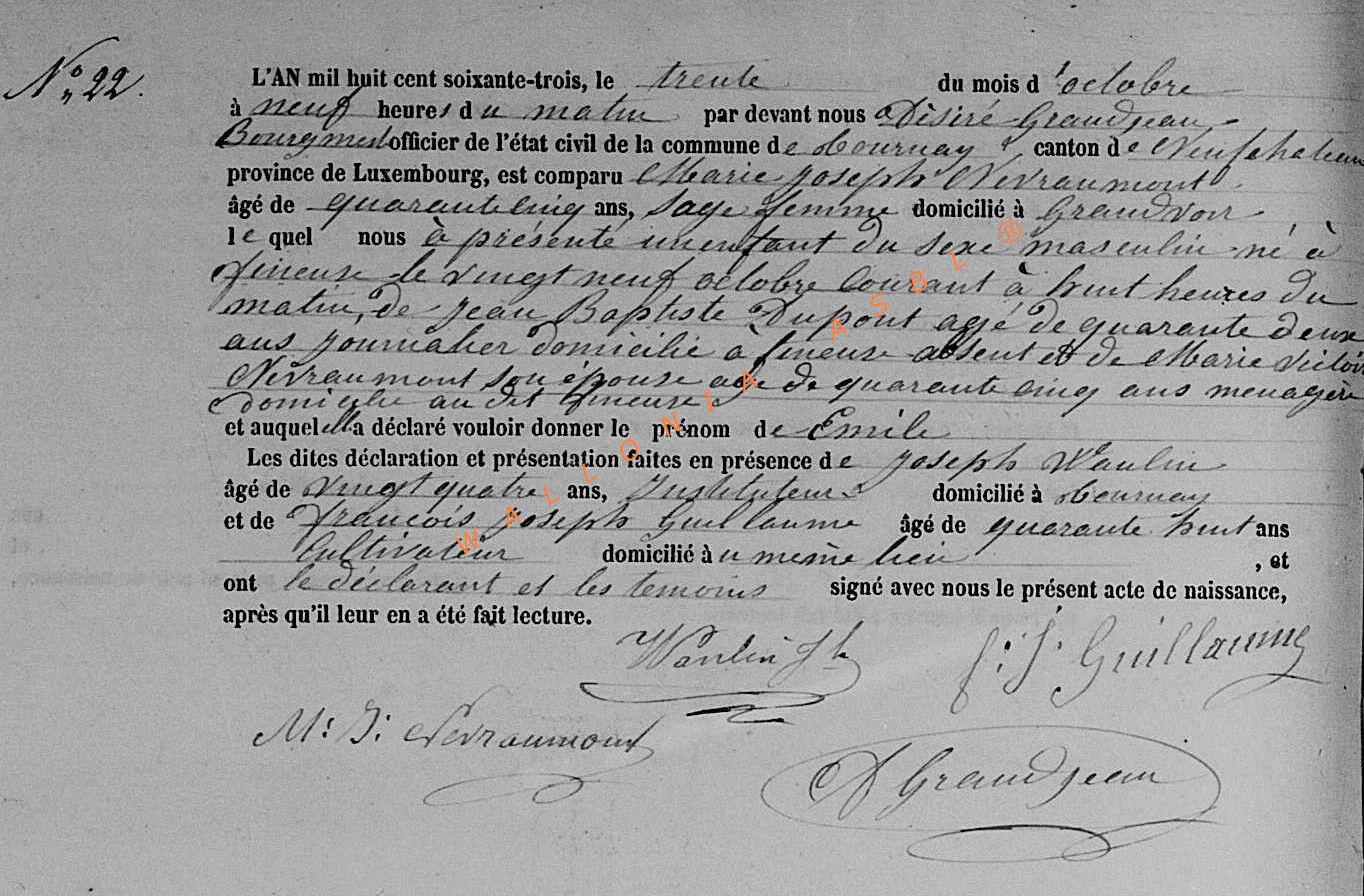 N° 22.
L'AN mil huit cent soixante-trois, le trente du mois d'octobre
à neuf heures du matin par devant nous Désiré Grandjean
Bourgmest officier de l'état civil de la commune de Tournay, canton de Neufchateau
province de Luxembourg, est comparu Marie Joseph Nevraumont
âgé de quarante cinq ans, Sage femme domicilié à Grandvoir
le quel nous à présenté un enfant du sexe masculin né à
fineuse le vingt neuf octobre courant à huit heures du
matin, de Jean Baptiste Dupont agé de quarante deux
ans journalier domicilié à fineuse absent et de Marie Victoir
Nevraumont son épouse agé de quarante cinq ans menagère
domicilié au dit fineuse
et auquel ella a déclaré vouloir donner le prénom de Emile
Les dites déclaration et présentation faites en présence de Joseph Wanlin
âgé de vingt quatre ans, Instituteur domicilié à Tournay
et de François Joseph Guillaume âgé de quarante huit ans
Cultivateur domicilié au même lieu, et
ont le déclarant et les temoins signé avec nous le présent acte de naissance,
après qu'il leur en a été fait lecture.
Wanlin Jh
f: J. Guillaume
M: J: Nevraumont
D Grandjean
WALLONIA ASBL ®